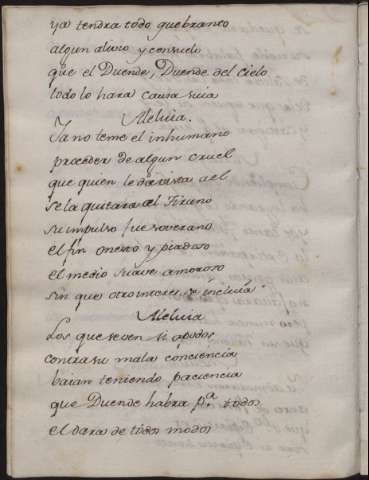 ya tendra todo quebranto
algun alivio y consuelo
que el Duende, Duende del cielo
todo lo hara causa suia
Aleluia.
Ya no teme el inhumano
proceder de algun cruel
que quien le da vista a el
se la quitara al Tirano
su impulso fue soverano
el fin onesto y piadoso
el medio suave amoroso
sin que otro interes se incluia
Aleluia
Los que se ven
contra su mala conciencia
baian teniendo paciencia
que Duende habra pa. todos
el dara de todos modos